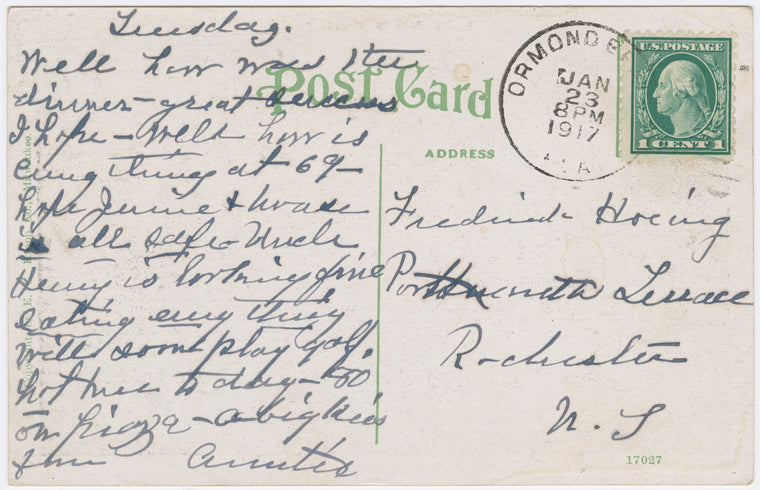 Tuesday.
Well how was the
dinner - great
I hope - Well how is
everything at 69 -
hope Junie & house
is all safe - Uncle
Henry is looking fine
eating everything
will soon play golf.
hot here today - 80
on Piazza - a big kiss
from Aunties
Post Card
ADDRESS
ORMOND
JAN
23
8PM
1917
U.S. POSTAGE
1 CENT 1
Frederick Hoeing
Terrace
Rochester
N. Y
17027